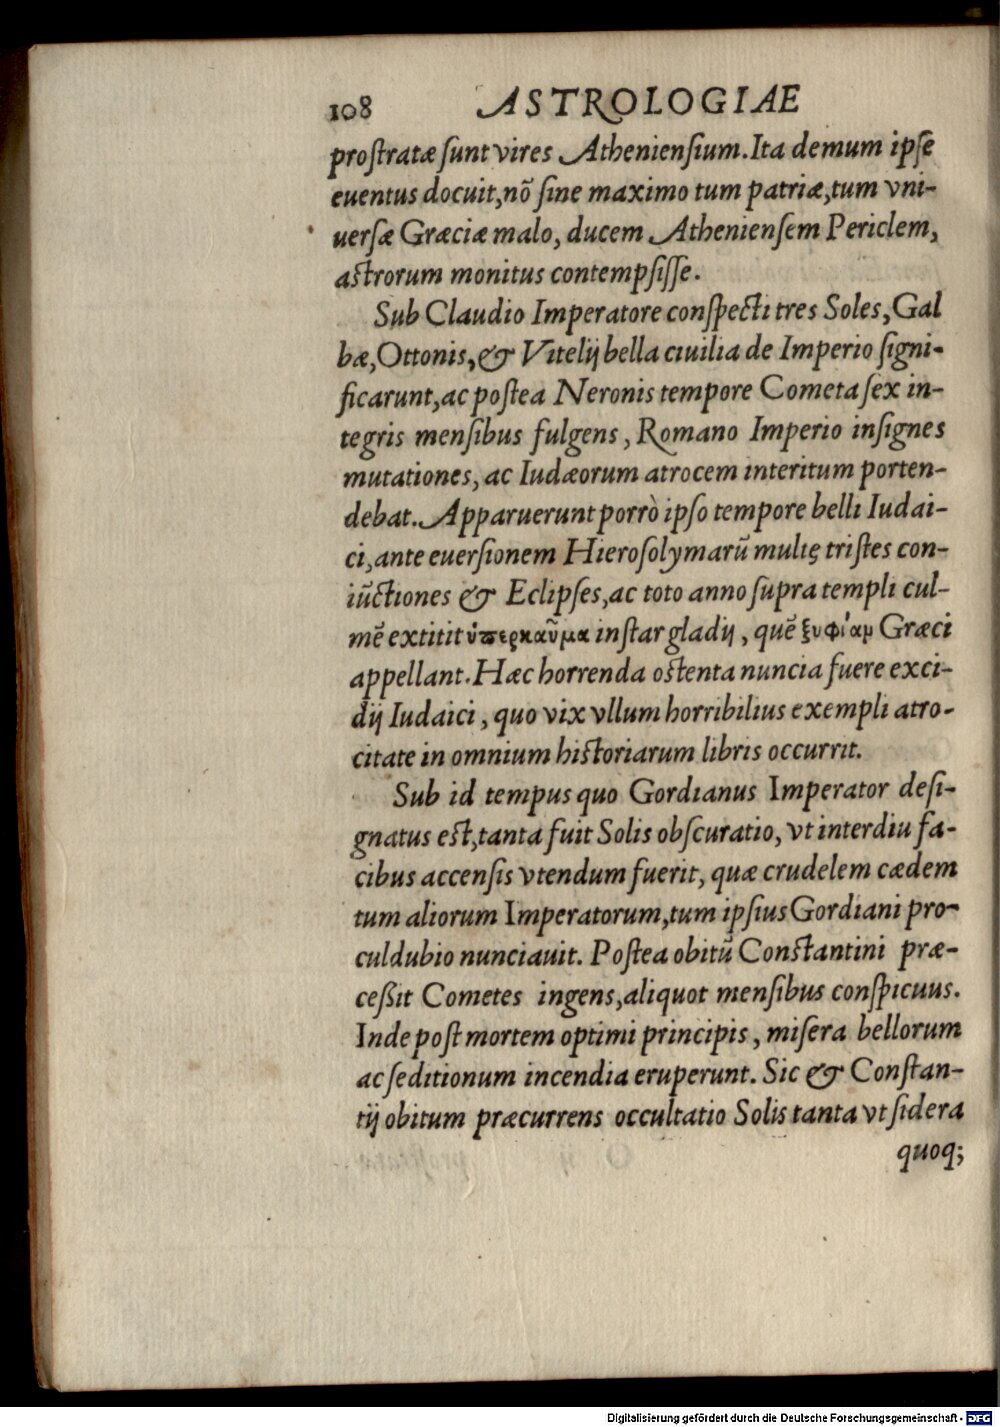 108 ASTROLOGIAE
prostratæ sunt vires Atheniensium. Ita demum ipse
euentus docuit, nō sine maximo tum patriæ, tum vni-
uersæ Græciæ malo, ducem Atheniensem Periclem,
astrorum monitus contempsisse.
Sub Claudio Imperatore conspecti tres Soles, Gal
bæ, Ottonis, & Vitelij bella ciuilia de Imperio signi-
ficarunt, ac postea Neronis tempore Cometa sex in-
tegris mensibus fulgens, Romano Imperio insignes
mutationes, ac Iudæorum atrocem interitum porten-
debat. Apparuerunt porrò ipso tempore belli Iudai-
ci, ante euersionem Hierosolymarū multę tristes con-
iūctiones & Eclipses, ac toto anno supra templi cul-
mē extitit ὑπερκαῦμα instar gladij, quē ξυφίαμ Græci
appellant. Hæc horrenda ostenta nuncia fuere exci-
dij Iudaici, quo vix vllum horribilius exempli atro-
citate in omnium historiarum libris occurrit.
Sub id tempus quo Gordianus Imperator desi-
gnatus est, tanta fuit Solis obscuratio, vt interdiu fa-
cibus accensis vtendum fuerit, quæ crudelem cædem
tum aliorum Imperatorum, tum ipsius Gordiani pro-
culdubio nunciauit. Postea obitū Constantini præ-
ceßit Cometes ingens, aliquot mensibus conspicuus.
Inde post mortem optimi principis, misera bellorum
ac seditionum incendia eruperunt. Sic & Constan-
tij obitum præcurrens occultatio Solis tanta vt sidera
quoq;
Digitalisierung gefördert durch die Deutsche Forschungsgemeinschaft - DFG